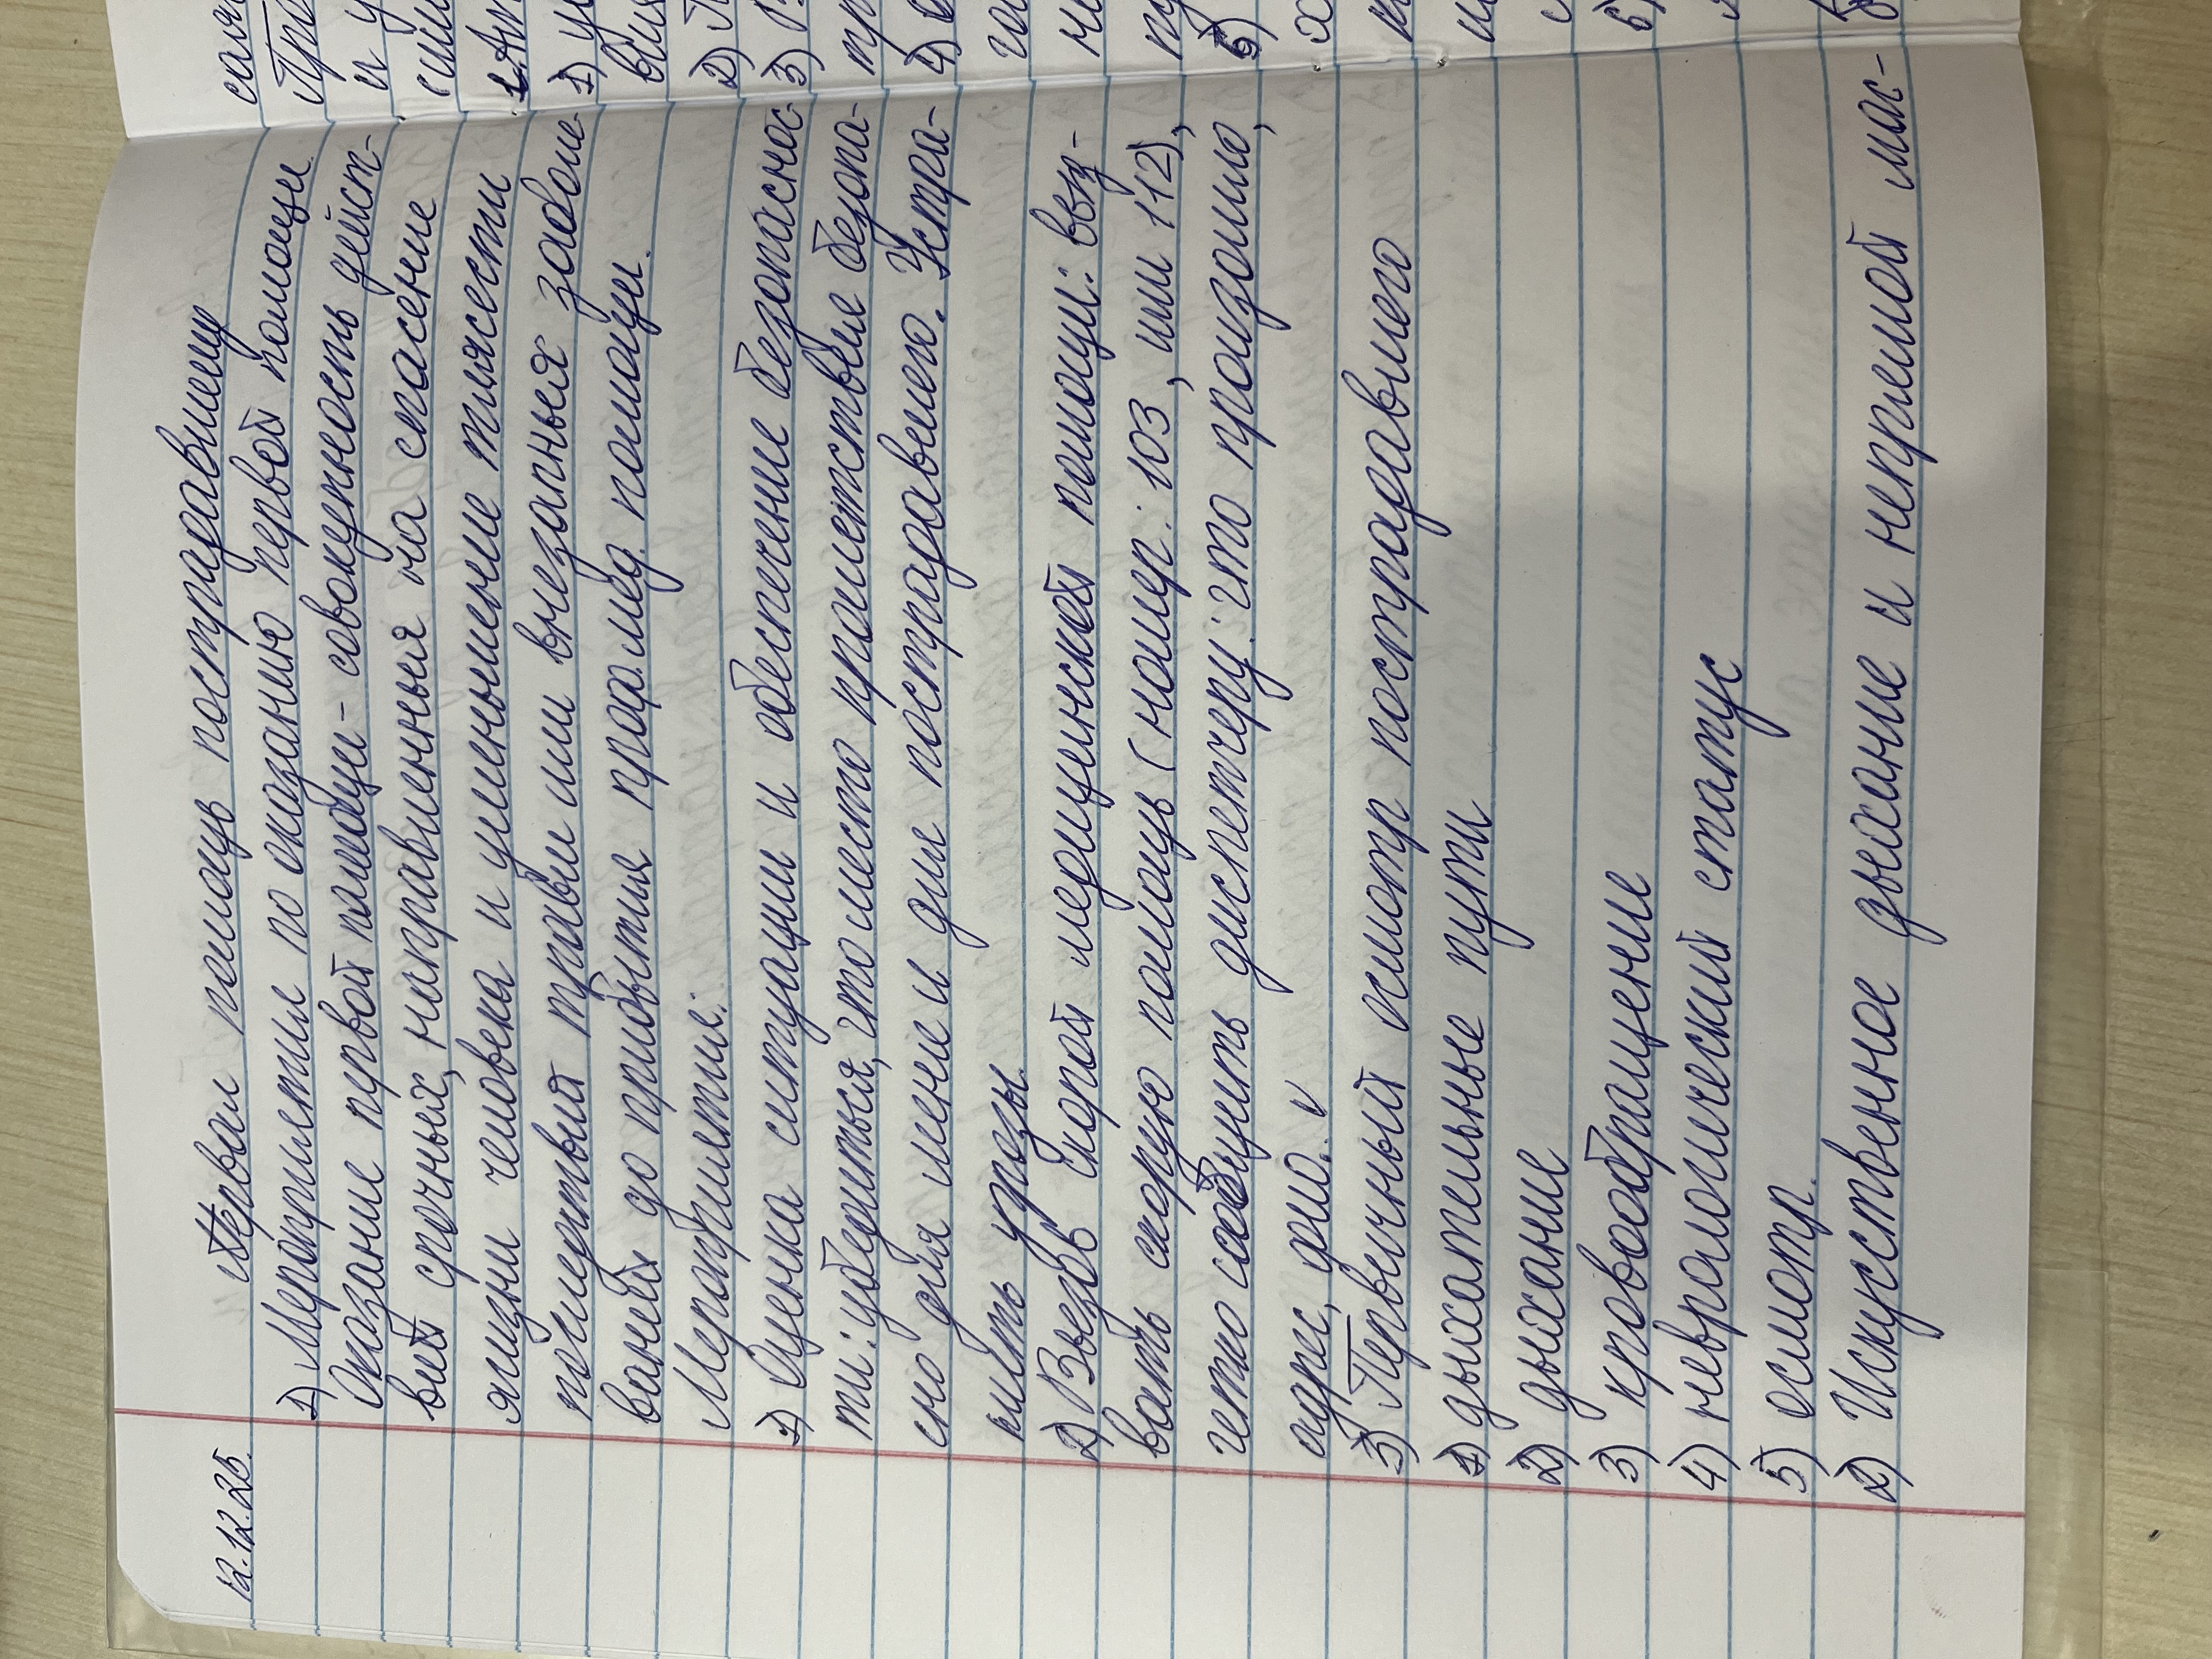 12.12.25.
Первая помощь пострадавшему
1) Мероприятия по оказанию первой помощи
Оказание первой помощи - совокупность дейст-
вий срочных, направленных на спасение
жизни человека и уменьшение тяжести
последствий травы или внезапных заболе-
ваней до прибытия проф. мед. помощи.
Мероприятия:
1) Оценка ситуации и обеспечение безопаснос-
ти: убедиться, что место проишествие безопа-
сно для меня и для пострадавшего. Устра-
нить угрозы.
2) Вызов скорой медицинской помощи: выз-
вать скорую помощь (номер: 103, или 112),
четко сообщить диспетчеру: что произошло,
адрес, фио. v
3) Первичный осмотр пострадавшего
1) дыхательные пути
2) дыхание
3) кровообращение
4) неврологический статус
5) осмотр.
2) Искуственное дыхание и непрямой мас-
1)
2)
3)
4)
5)
6)